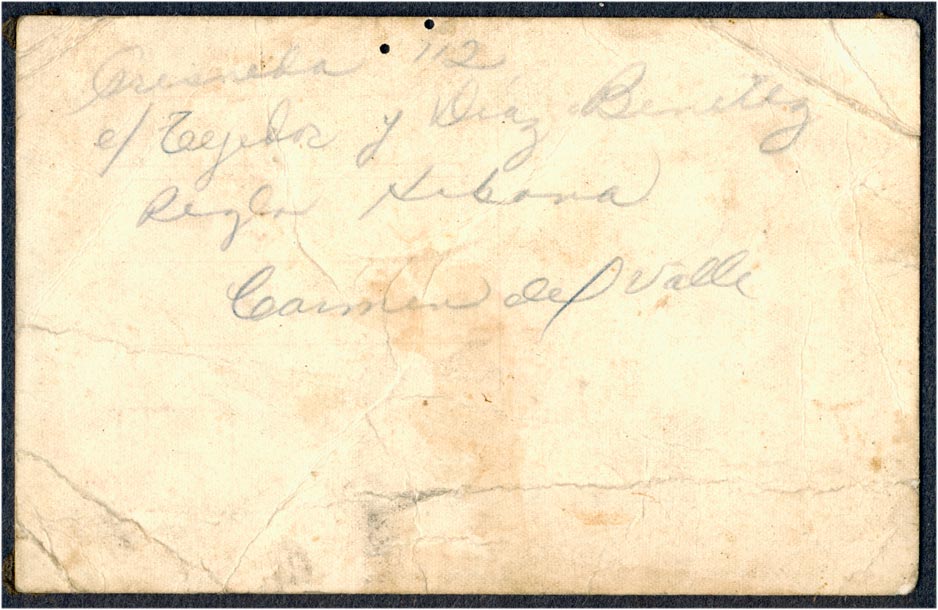 112
e/ Tejedor y Diaz Benitez
Regla Habana
Carmen del Valle